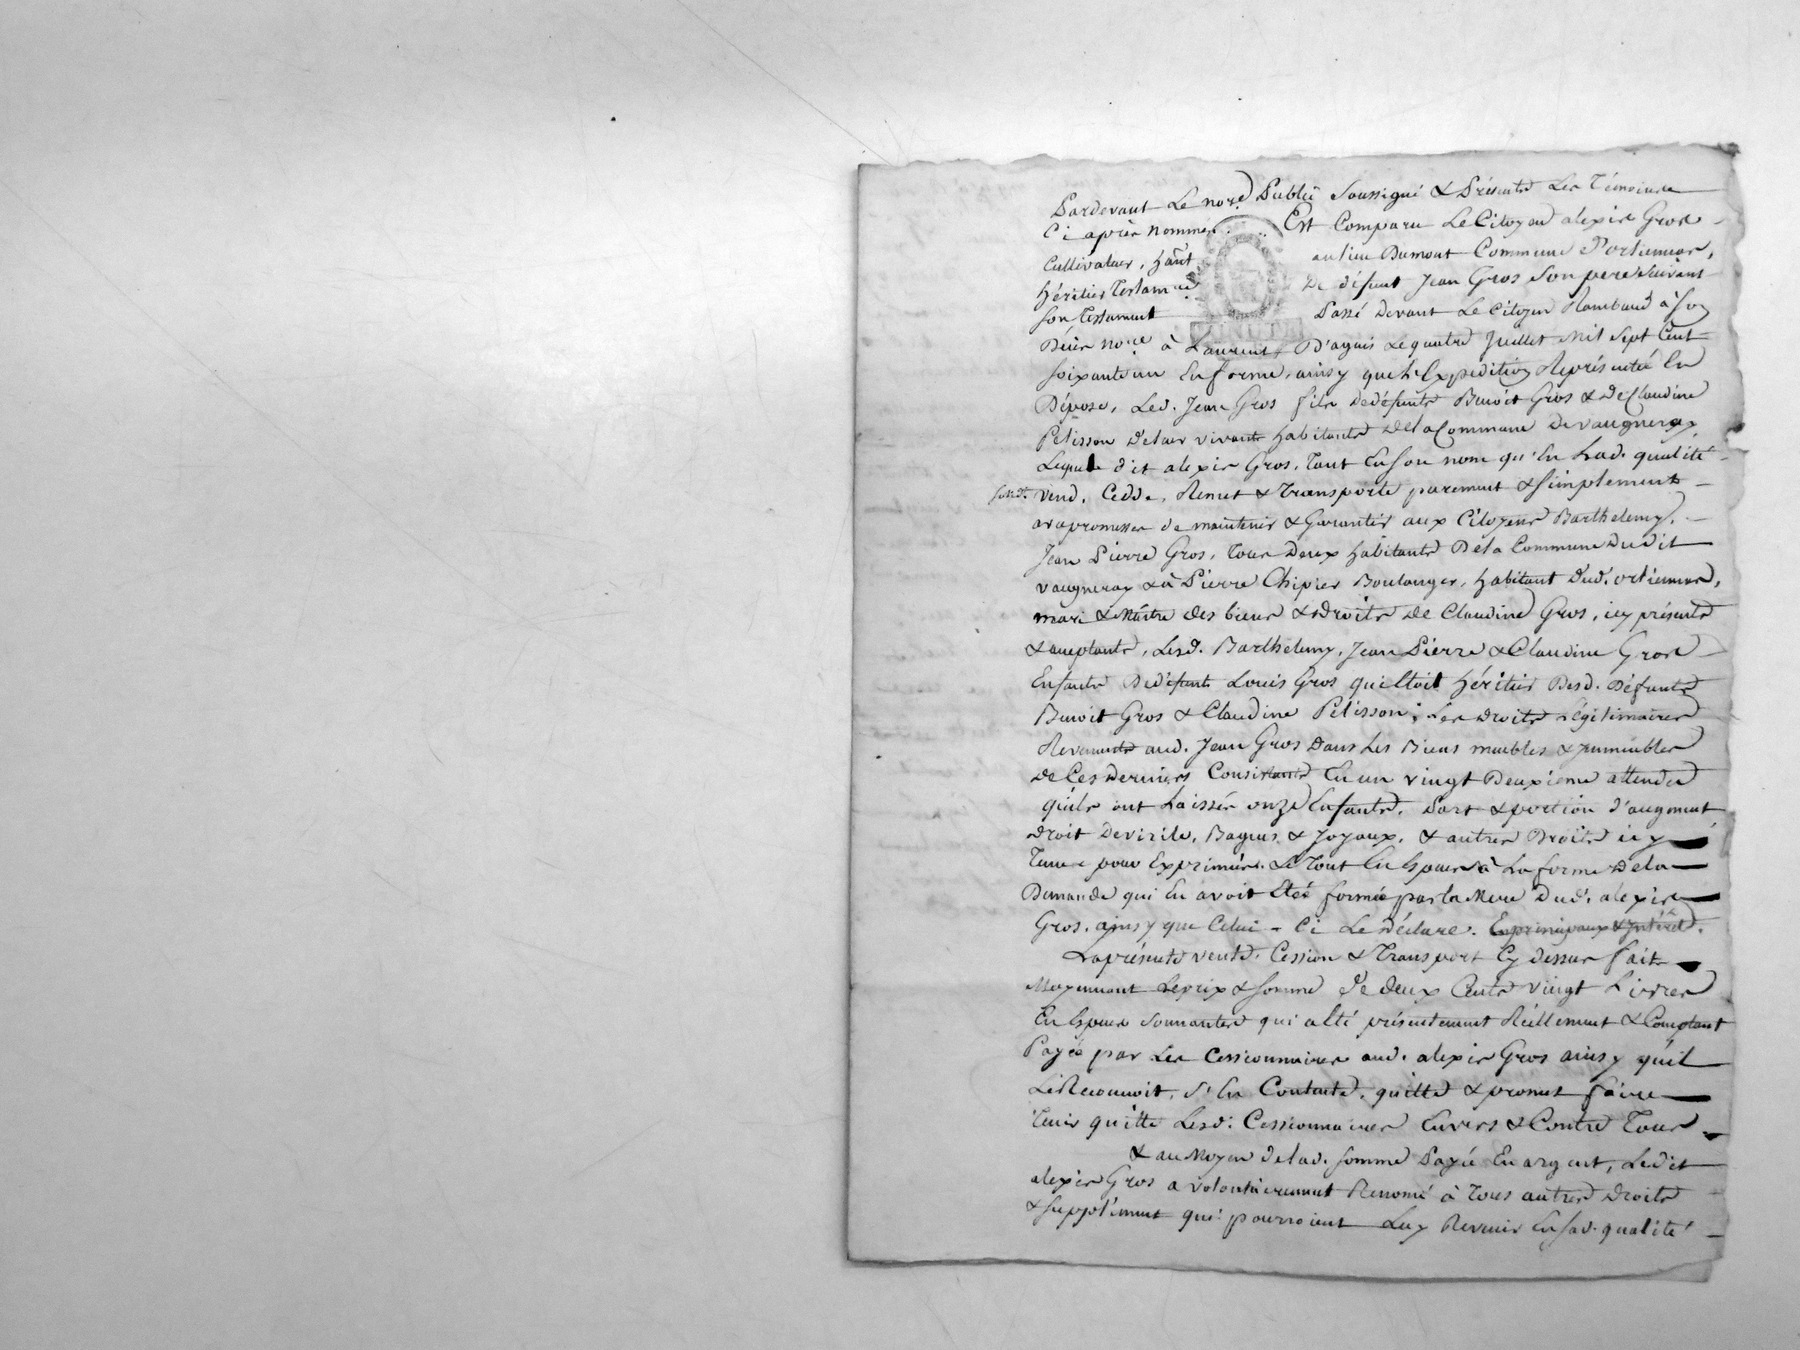 Pardevant Le no.re Public Soussigné & Présents Les Témoins
Ci après nommés. Est Comparu Le Citoyen alexis Gros
Cultivateur, hânt au lieu Dumont Commune d'ortiennas,
héritier testam.re De défunt Jean Gros Son pere Suivant
son testament Passé Devant Le Citoyen Rambaud à son
Décès no.re à Laurent D'agnis Le quatre Juillet Mil Sept Cent
soixante un En forme, ainsy que L'Expedition Représentée En
Dépose, Led. Jean Gros fils de défunts Benoit Gros & de Claudine
Pelisson d'eleur vivants habitants de la Commune De vaugneray,
Lequel dit alexis Gros, tant En son nom qu'En Lad. qualité
vend, Cedde, Remet & Transporte purement & simplement
avec promesse de maintenir & Garantir aux Citoyens Barthelemy,
Jean Pierre Gros, tous Deux habitants De la Commune Dudit
vaugneray & à Pierre Chipier Boulanger, habitant dud. ortiennas,
mari & Maitre des biens & droits de Claudine Gros, icy présents
& acceptants, Lesd. Barthelemy, Jean Pierre & Claudine Gros
Enfants De défunt Louis Gros qui Etoit héritier Desd. Défunts
Benoit Gros & Claudine Pelisson; Les droits Légitimaires
Revenants aud. Jean Gros Dans Les Biens meubles & immeubles
de Ces Derniers Consistants En un vingt Deuxieme attendu
qu'ils ont Laissés onze Enfants, Part & portion d'augment
droit De virile, Bagues & Joyaux, & autres Droits icy
Tenus pour Exprimés. Le tout En Espèces à La forme De la
Demande qui En avoit Eté formée par la Mere Dud. alexis
Gros, ainsy que Celui-Ci Le Déclare. En principaux & Intérêts.
La présente vente, Cession & Transport Cy Dessus fait
Moyennant Le prix & somme de deux Cents vingt Livres
En Espèces sonnantes qui a Eté présentement Réellement & Comptant
Payée par Les Cessionnaires aud. alexis Gros ainsy qu'il
Le Reconnoit, S'En Contente, quitte & promet faire
tenir quitte Lesd. Cessionnaires Envers & Contre Tous
& au Moyen de lad. somme Payée En argent, Ledit
alexis Gros a volontairement Renoncé à tous autres droits
& supplément qui pourroient Luy Revenir En sad. qualité